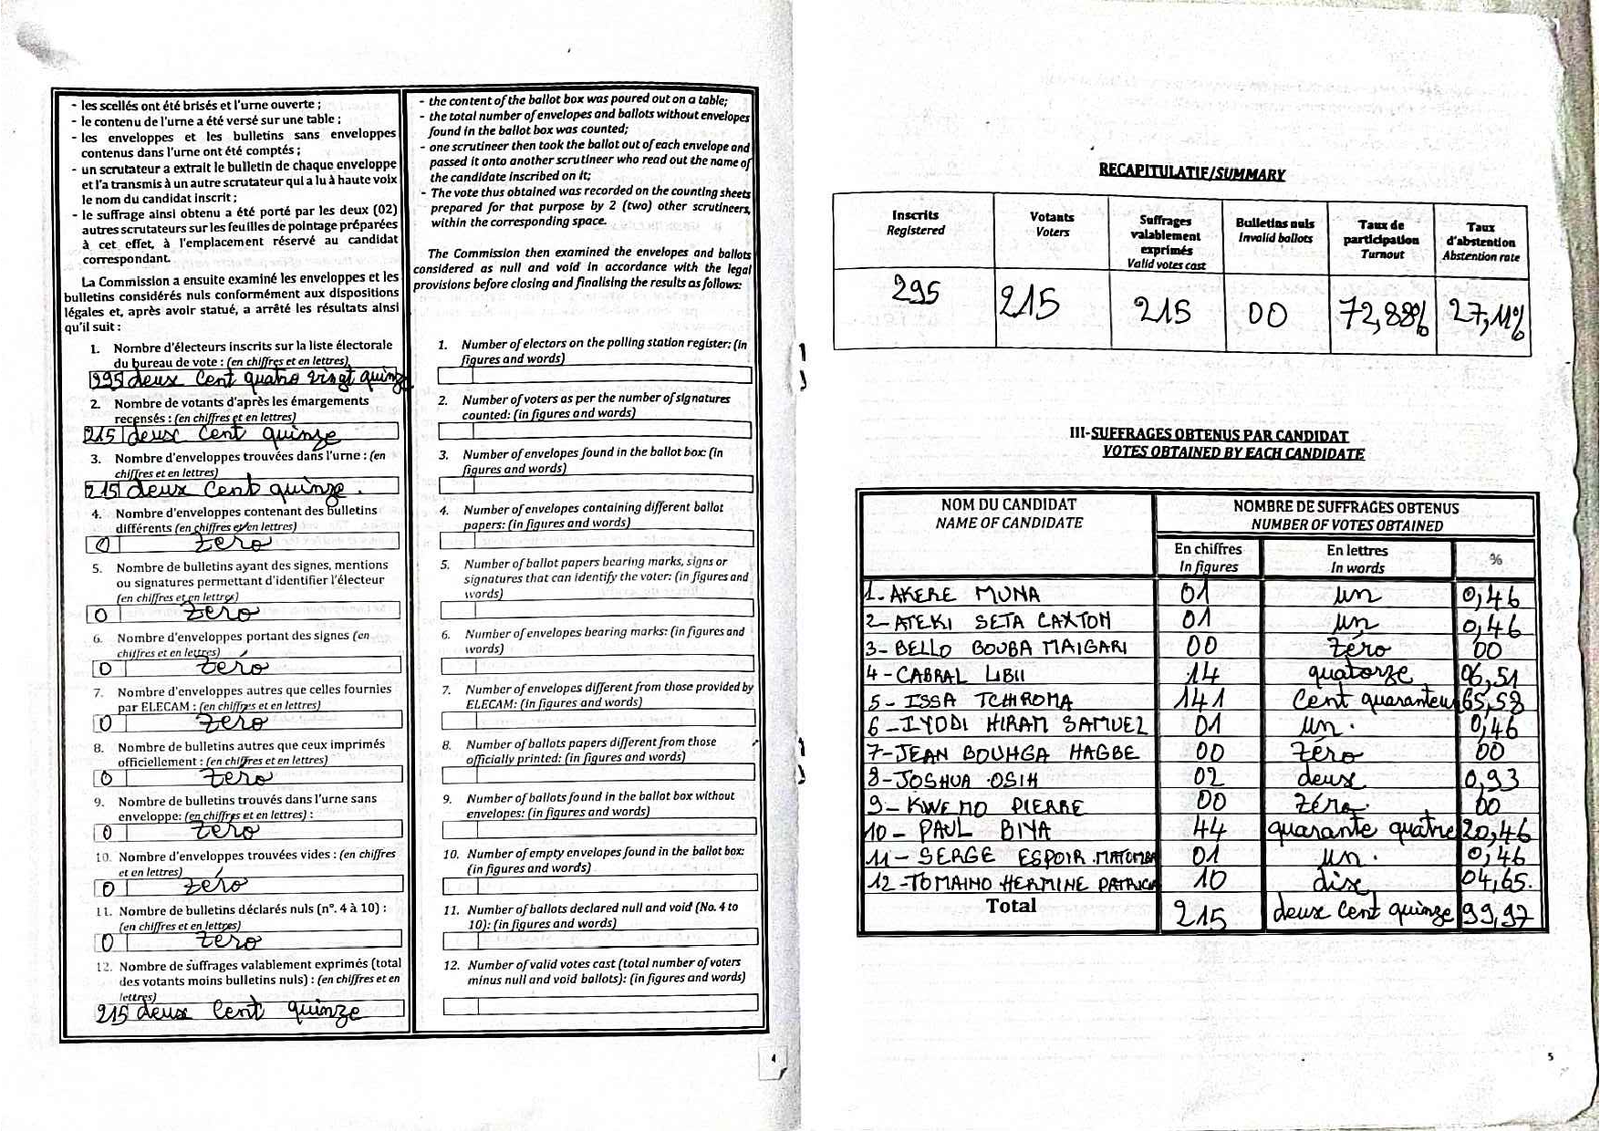 - les scellés ont été brisés et l'urne ouverte ;
- le contenu de l'urne a été versé sur une table ;
- les enveloppes et les bulletins sans enveloppes
contenus dans l'urne ont été comptés ;
- un scrutateur a extrait le bulletin de chaque enveloppe
et l'a transmis à un autre scrutateur qui a lu à haute voix
le nom du candidat inscrit ;
- le suffrage ainsi obtenu a été porté par les deux (02)
autres scrutateurs sur les feuilles de pointage préparées
à cet effet, à l'emplacement réservé au candidat
correspondant.
La Commission a ensuite examiné les enveloppes et les
bulletins considérés nuls conformément aux dispositions
légales et, après avoir statué, a arrêté les résultats ainsi
qu'il suit :
1. Nombre d'électeurs inscrits sur la liste électorale
du bureau de vote : (en chiffres et en lettres)
295 deux cent quatre vingt quinze
2. Nombre de votants d'après les émargements
recensés : (en chiffres et en lettres)
215 deux cent quinze
3. Nombre d'enveloppes trouvées dans l'urne : (en
chiffres et en lettres)
215 deux cent quinze.
4. Nombre d'enveloppes contenant des bulletins
différents (en chiffres et en lettres)
0 zéro
5. Nombre de bulletins ayant des signes, mentions
ou signatures permettant d'identifier l'électeur
(en chiffres et en lettres)
0 zéro
6. Nombre d'enveloppes portant des signes (en
chiffres et en lettres)
0 zéro
7. Nombre d'enveloppes autres que celles fournies
par ELECAM : (en chiffres et en lettres)
0 zéro
8. Nombre de bulletins autres que ceux imprimés
officiellement : (en chiffres et en lettres)
0 zéro
9. Nombre de bulletins trouvés dans l'urne sans
enveloppe: (en chiffres et en lettres) :
0 zéro
10. Nombre d'enveloppes trouvées vides : (en chiffres
et en lettres)
0 zéro
11. Nombre de bulletins déclarés nuls (n°. 4 à 10) :
(en chiffres et en lettres)
0 zéro
12. Nombre de suffrages valablement exprimés (total
des votants moins bulletins nuls) : (en chiffres et en
lettres)
215 deux cent quinze
- the content of the ballot box was poured out on a table;
- the total number of envelopes and ballots without envelopes
found in the ballot box was counted;
- one scrutineer then took the ballot out of each envelope and
passed it onto another scrutineer who read out the name of
the candidate inscribed on it;
- The vote thus obtained was recorded on the counting sheets
prepared for that purpose by 2 (two) other scrutineers,
within the corresponding space.
The Commission then examined the envelopes and ballots
considered as null and void in accordance with the legal
provisions before closing and finalising the results as follows:
1. Number of electors on the polling station register: (in
figures and words)
2. Number of voters as per the number of signatures
counted: (in figures and words)
3. Number of envelopes found in the ballot box (in
figures and words)
4. Number of envelopes containing different ballot
papers: (in figures and words)
5. Number of ballot papers bearing marks, signs or
signatures that can identify the voter: (in figures and
words)
6. Number of envelopes bearing marks: (in figures and
words)
7. Number of envelopes different from those provided by
ELECAM: (in figures and words)
8. Number of ballots papers different from those
officially printed: (in figures and words)
9. Number of ballots found in the ballot box without
envelopes: (in figures and words)
10. Number of empty envelopes found in the ballot box:
(in figures and words)
11. Number of ballots declared null and void (No. 4 to
10): (in figures and words)
12. Number of valid votes cast (total number of voters
minus null and void ballots): (in figures and words)
4
RECAPITULATIF/SUMMARY
Inscrits Registered | Votants Voters | Suffrages valablement exprimés Valid votes cast | Bulletins nuls Invalid ballots | Taux de participation Turnout | Taux d'abstention Abstention rate
295 | 215 | 215 | 00 | 72,88% | 27,11%
III-SUFFRAGES OBTENUS PAR CANDIDAT
VOTES OBTAINED BY EACH CANDIDATE
NOM DU CANDIDAT NAME OF CANDIDATE | NOMBRE DE SUFFRAGES OBTENUS NUMBER OF VOTES OBTAINED
En chiffres In figures | En lettres In words | %
1- AKERE MUNA | 01 | un | 0,46
2- ATEKI SETA CAXTON | 01 | un | 0,46
3- BELLO BOUBA MAIGARI | 00 | zéro | 00
4- CABRAL LIBII | 14 | quatorze | 06,51
5- ISSA TCHIROMA | 141 | cent quarante un | 65,58
6- IYODI HIRAM SAMUEL | 01 | un. | 0,46
7- JEAN BOUHGA HAGBE | 00 | zéro | 00
8- JOSHUA OSIH | 02 | deux | 0,93
9- KWEMO PIERRE | 00 | zéro | 00
10- PAUL BIYA | 44 | quarante quatre | 20,46
11- SERGE ESPOIR MATOMBA | 01 | un. | 0,46
12- TOMAINO HERMINE PATRICIA | 10 | dix | 04,65.
Total | 215 | deux cent quinze | 99,97
5